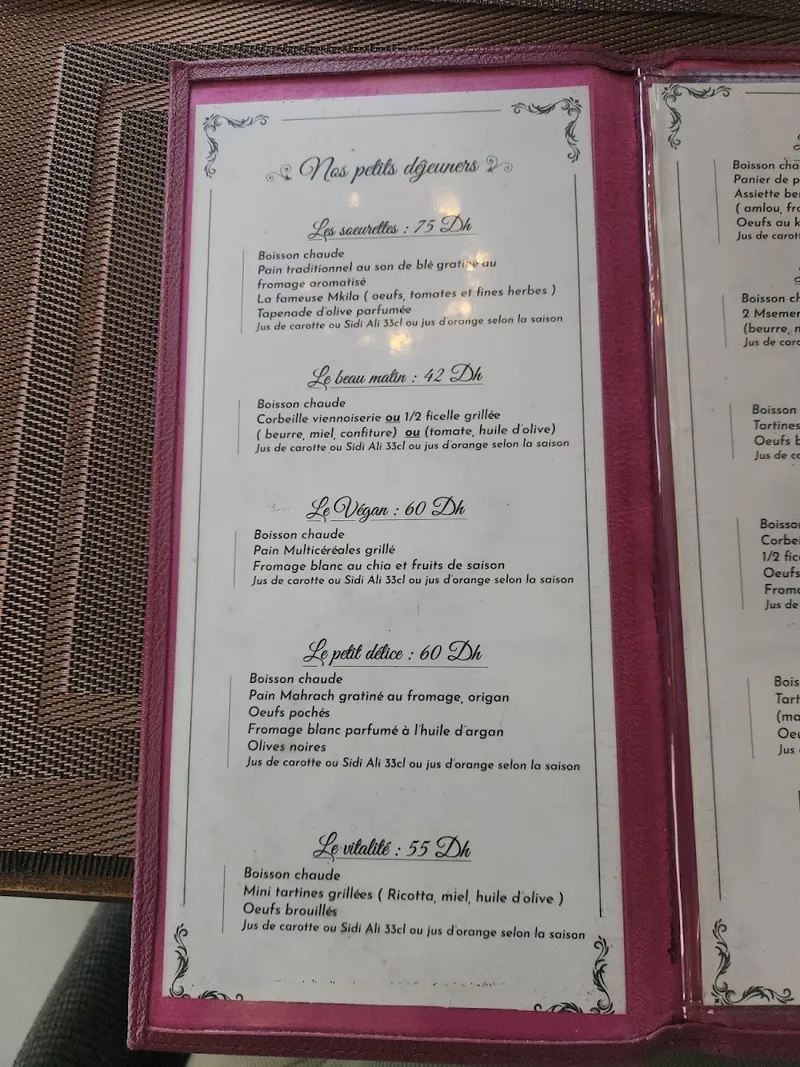 Nos petits déjeuners
Les soeurettes : 75 Dh
Boisson chaude
Pain traditionnel au son de blé gratiné au
fromage aromatisé
La fameuse Mkila ( oeufs, tomates et fines herbes )
Tapenade d'olive parfumée
Jus de carotte ou Sidi Ali 33cl ou jus d'orange selon la saison
Le beau matin : 42 Dh
Boisson chaude
Corbeille viennoiserie ou 1/2 ficelle grillée
( beurre, miel, confiture) ou (tomate, huile d'olive)
Jus de carotte ou Sidi Ali 33cl ou jus d'orange selon la saison
Le Végan : 60 Dh
Boisson chaude
Pain Multicéréales grillé
Fromage blanc au chia et fruits de saison
Jus de carotte ou Sidi Ali 33cl ou jus d'orange selon la saison
Le petit délice : 60 Dh
Boisson chaude
Pain Mahrach gratiné au fromage, origan
Oeufs pochés
Fromage blanc parfumé à l'huile d'argan
Olives noires
Jus de carotte ou Sidi Ali 33cl ou jus d'orange selon la saison
Le vitalité : 55 Dh
Boisson chaude
Mini tartines grillées ( Ricotta, miel, huile d'olive )
Oeufs brouillés
Jus de carotte ou Sidi Ali 33cl ou jus d'orange selon la saison
Boisson
Panier de
Assiette
( amlou,
Oeufs au
Jus de
Boisson
2
(beurre,
Jus de
Boisson
Tartines
Oeufs
Jus de
1/2
Oeufs
Jus de
Jus